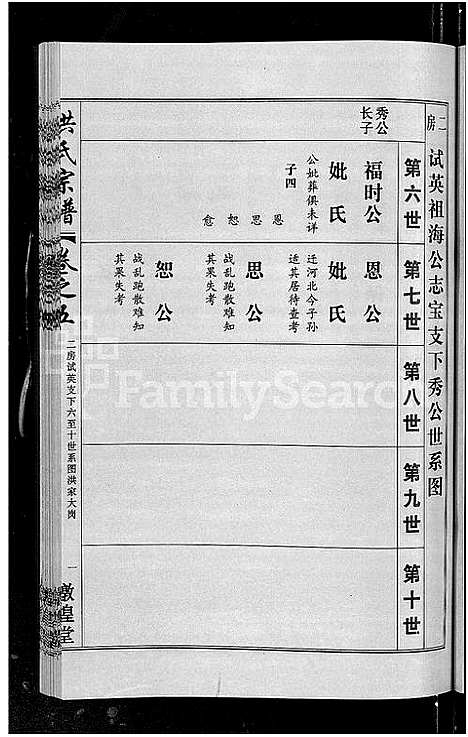 二房
试英祖海公志宝支下秀公世系图
第六世
第七世
第八世
第九世
第十世
秀公
长子
福时公
妣氏
公妣葬俱未详
子四
恩
思
恕
愈
恩公
妣氏
迁河北今子孙
适其居待查考
思公
战乱跑散难知
其果失考
恕公
战乱跑散难知
其果失考
洪氏宗谱
卷之五
二房试英支下六至十世系图洪家大岗
一
敦皇堂
FamilySearch